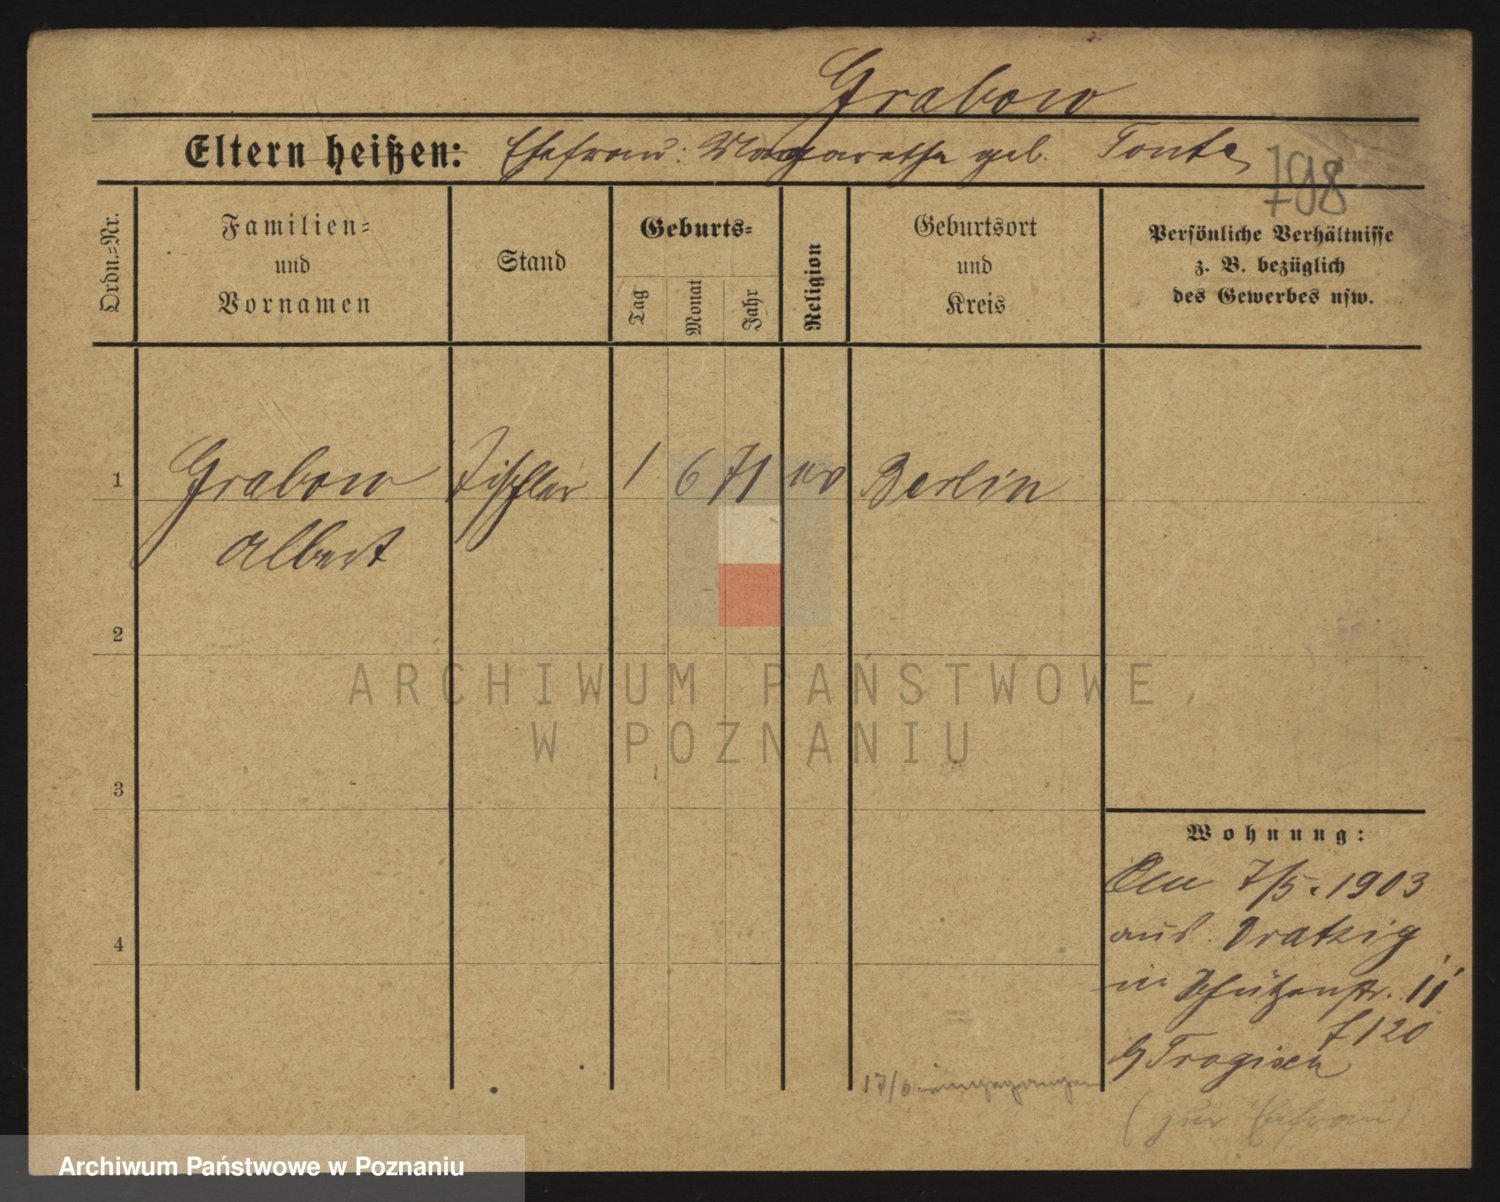 Grabow
Eltern heißen: Ehefrau: Margarethe geb. Tonte
798
Ordn.=Nr.
Familien=
und
Vornamen
Stand
Geburts=
Tag
Monat
Jahr
Religion
Geburtsort
und
Kreis
Persönliche Verhältnisse
z. B. bezüglich
des Gewerbes usw.
1 Grabow Tischler 1 6 71 ev Berlin
Albert
2
3
4
ARCHIWUM PAŃSTWOWE
W POZNANIU
Wohnung:
Am 7/5. 1903
aus Dratzig
in Schützenstr. 11
f 120
b/ Tragisch
17/6 eingegangen
(zur Ehefrau)
Archiwum Państwowe w Poznaniu